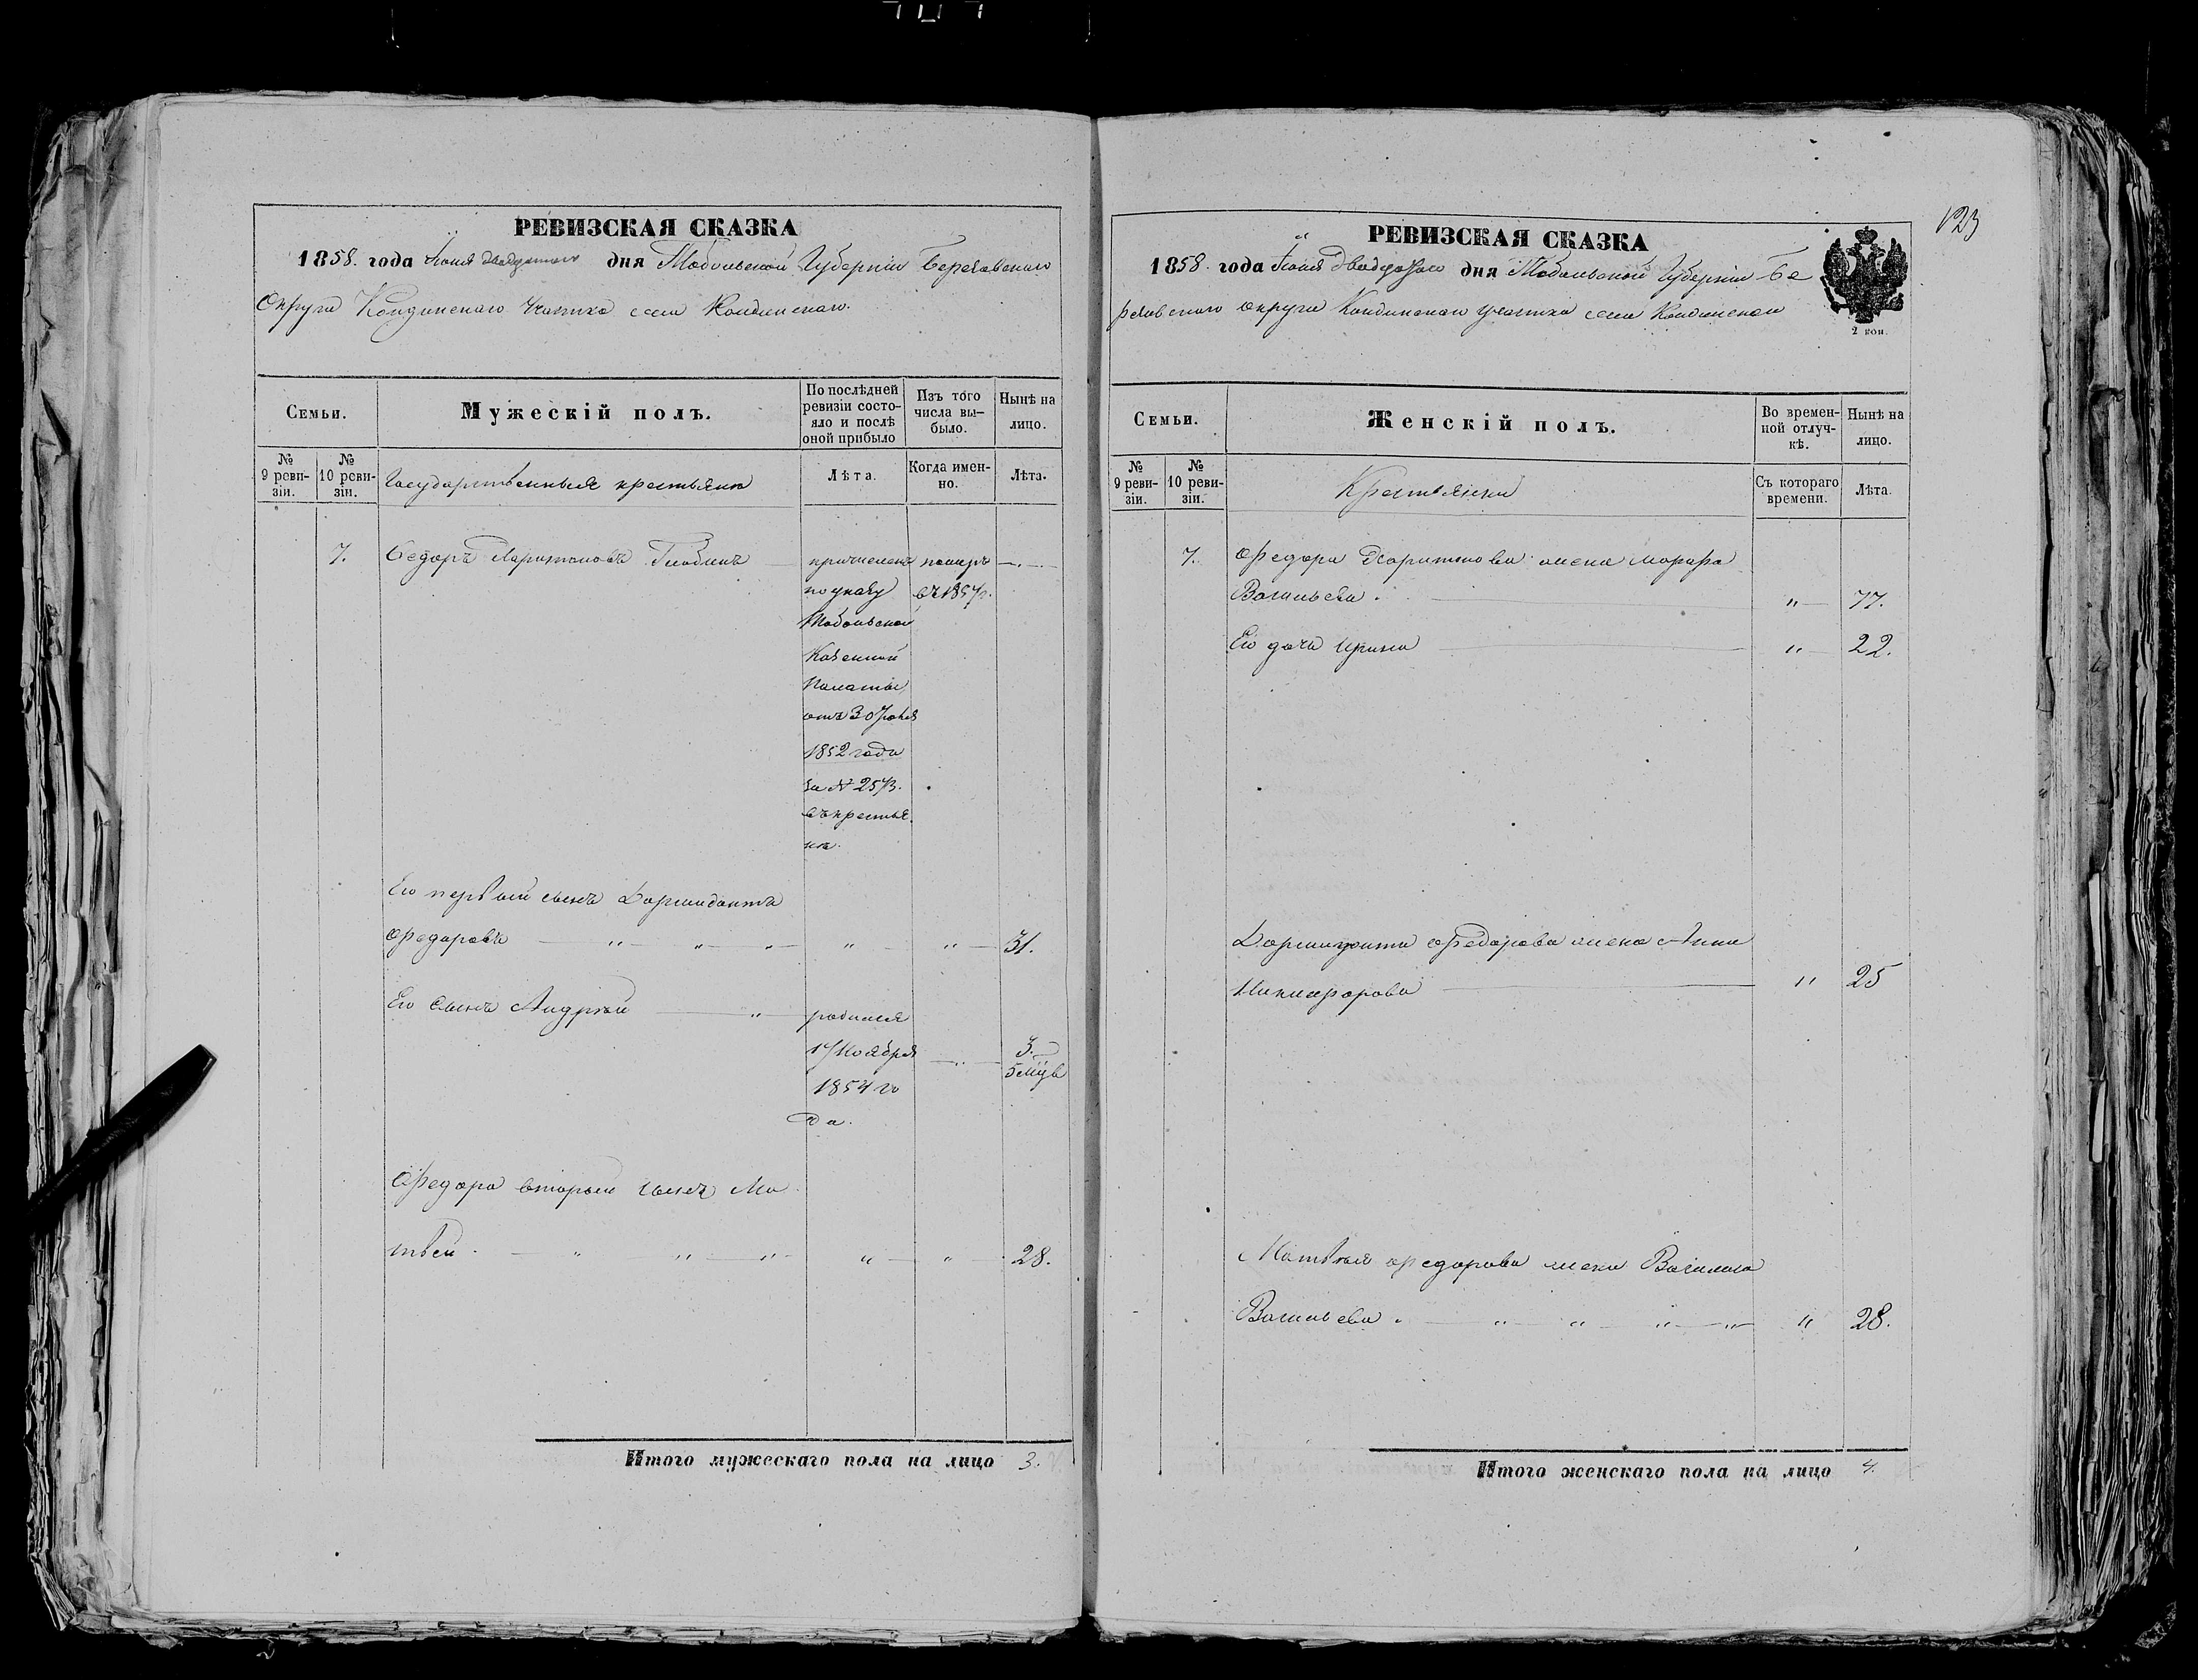 РЕВИЗСКАЯ СКАЗКА
1858. года Іюня двадцатаго дня Тобольской Губерніи Березовскаго
Округа Кондинскаго Участка села Кондинскаго.
Семьи.
Мужескій полъ.
По послѣдней ревизіи состояло и послѣ оной прибыло
Изъ того числа выбыло.
Нынѣ на лицо.
№ 9 ревизіи.
№ 10 ревизіи.
Государственныя крестьяна
Лѣта.
Когда именно.
Лѣта.
7. Федоръ Харитоновъ причисленъ померъ
по указу въ 1857г.
Тобольской
Казенной
Палаты
отъ 30
1852 года
за № 2573.
въ крестья
не.
Его первый сынъ Дормидонтъ
Федоровъ 31.
Его сынъ Андрей родился
17 Ноября 3.
1854 го 5 мцв
да.
Федора второй сынъ Ма
твей 28.
Итого мужескаго пола на лицо 3.
123
РЕВИЗСКАЯ СКАЗКА
1858. года Іюня двадцатаго дня Тобольской Губерніи Бе
резовскаго округа Кондинскаго участка села Кондинскаго
2 коп.
Семьи.
Женскій полъ.
Во временной отлучкѣ.
Нынѣ на лицо.
№ 9 ревизіи.
№ 10 ревизіи.
Крестьянки
Съ котораго времени.
Лѣта.
7. Федора Харитонова жена Марфа
Васильева. 77.
Его дочь Ирина 22.
Дормидонта Федорова жена Анна
Никифорова 25
Матвея Федорова жена
Васильева. 28.
Итого женскаго пола на лицо 4.